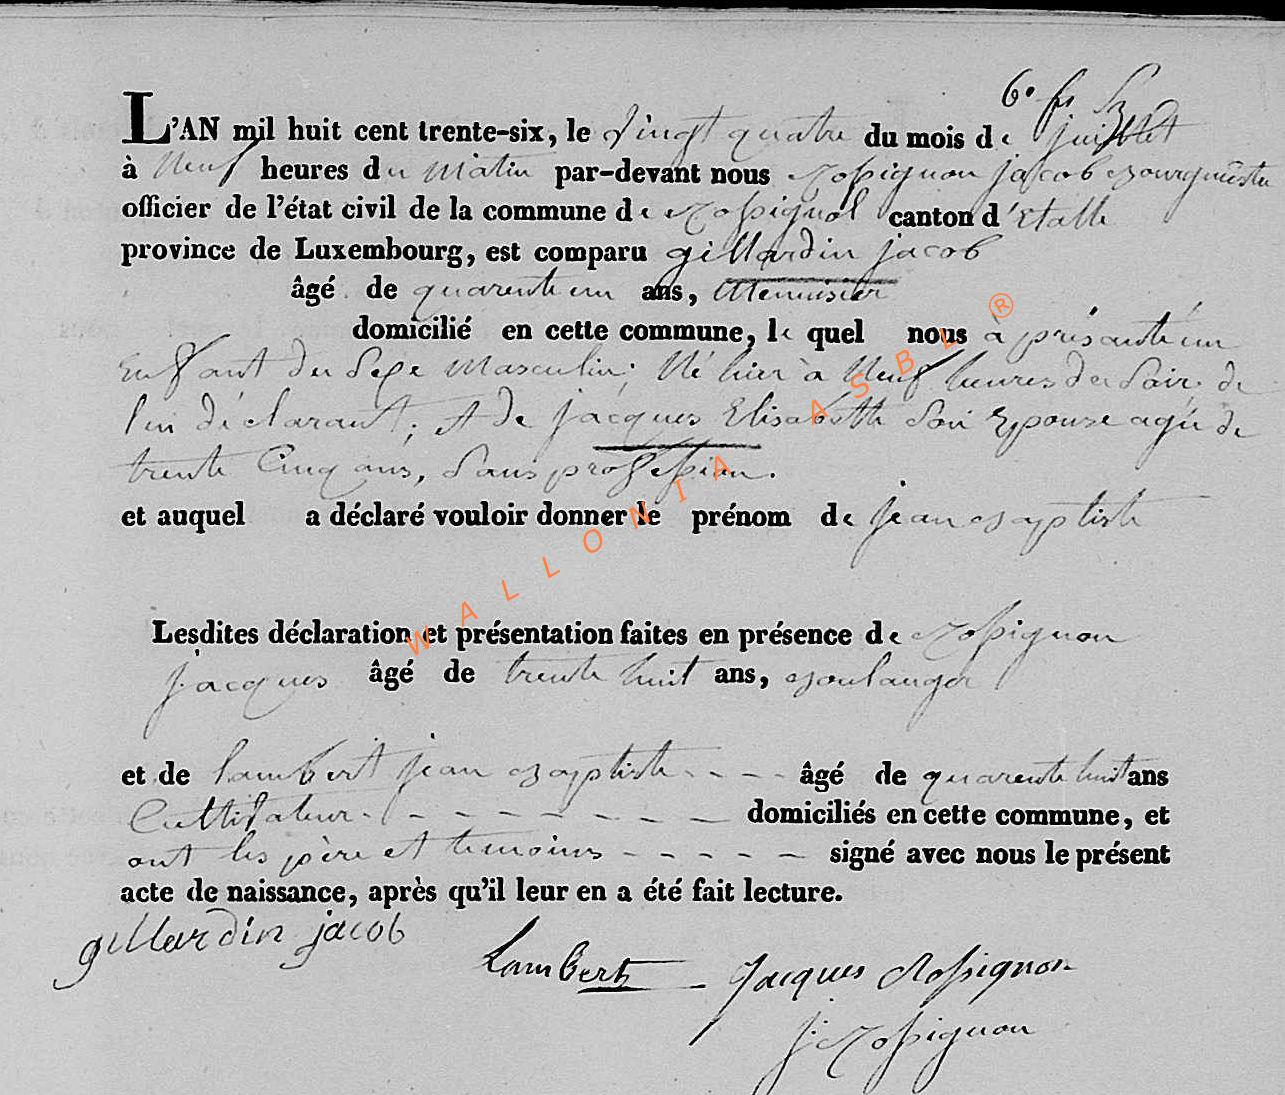 L'AN mil huit cent trente-six, le vingt quatre du mois de juillet
à Neuf heures du matin par-devant nous Rossignon jacob Bourgmestre
officier de l'état civil de la commune de Rossignol canton d'Etalle
province de Luxembourg, est comparu gillardin jacob
âgé de quarente un ans, Menuisier
domicilié en cette commune, le quel nous à présanté un
Enffant du Sexe Masculin; Né hier à Neuf heures du Soir de
lui déclarant; et de jacques Elisabette Son Epouse agée de
trente Cinq ans, Sans profession.
et auquel a déclaré vouloir donner le prénom de jean Baptiste
Lesdites déclaration et présentation faites en présence de Rossignon
jacques âgé de trente huit ans, Boulanger
et de lambert jean Baptiste - - - - âgé de quarente huit ans
Cultivateur - - - - - - - - - domiciliés en cette commune, et
ont les père et temoins - - - - - signé avec nous le présent
acte de naissance, après qu'il leur en a été fait lecture.
gillardin jacob
Lambert Jacques Rossignon
j. Rossignon
WALLONIA ASBL ®